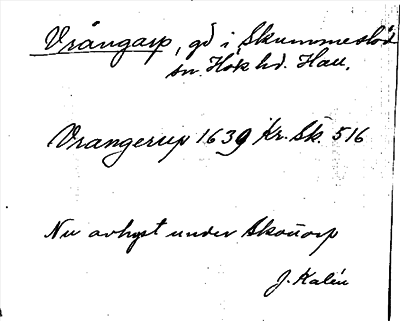 Vrångarp, gd i Skummeslöv
sn. Höks hd. Hall.
Vrangerup 1639 Kr. Sk. 516
Nu avhyst under Skottorp
J. Kalén